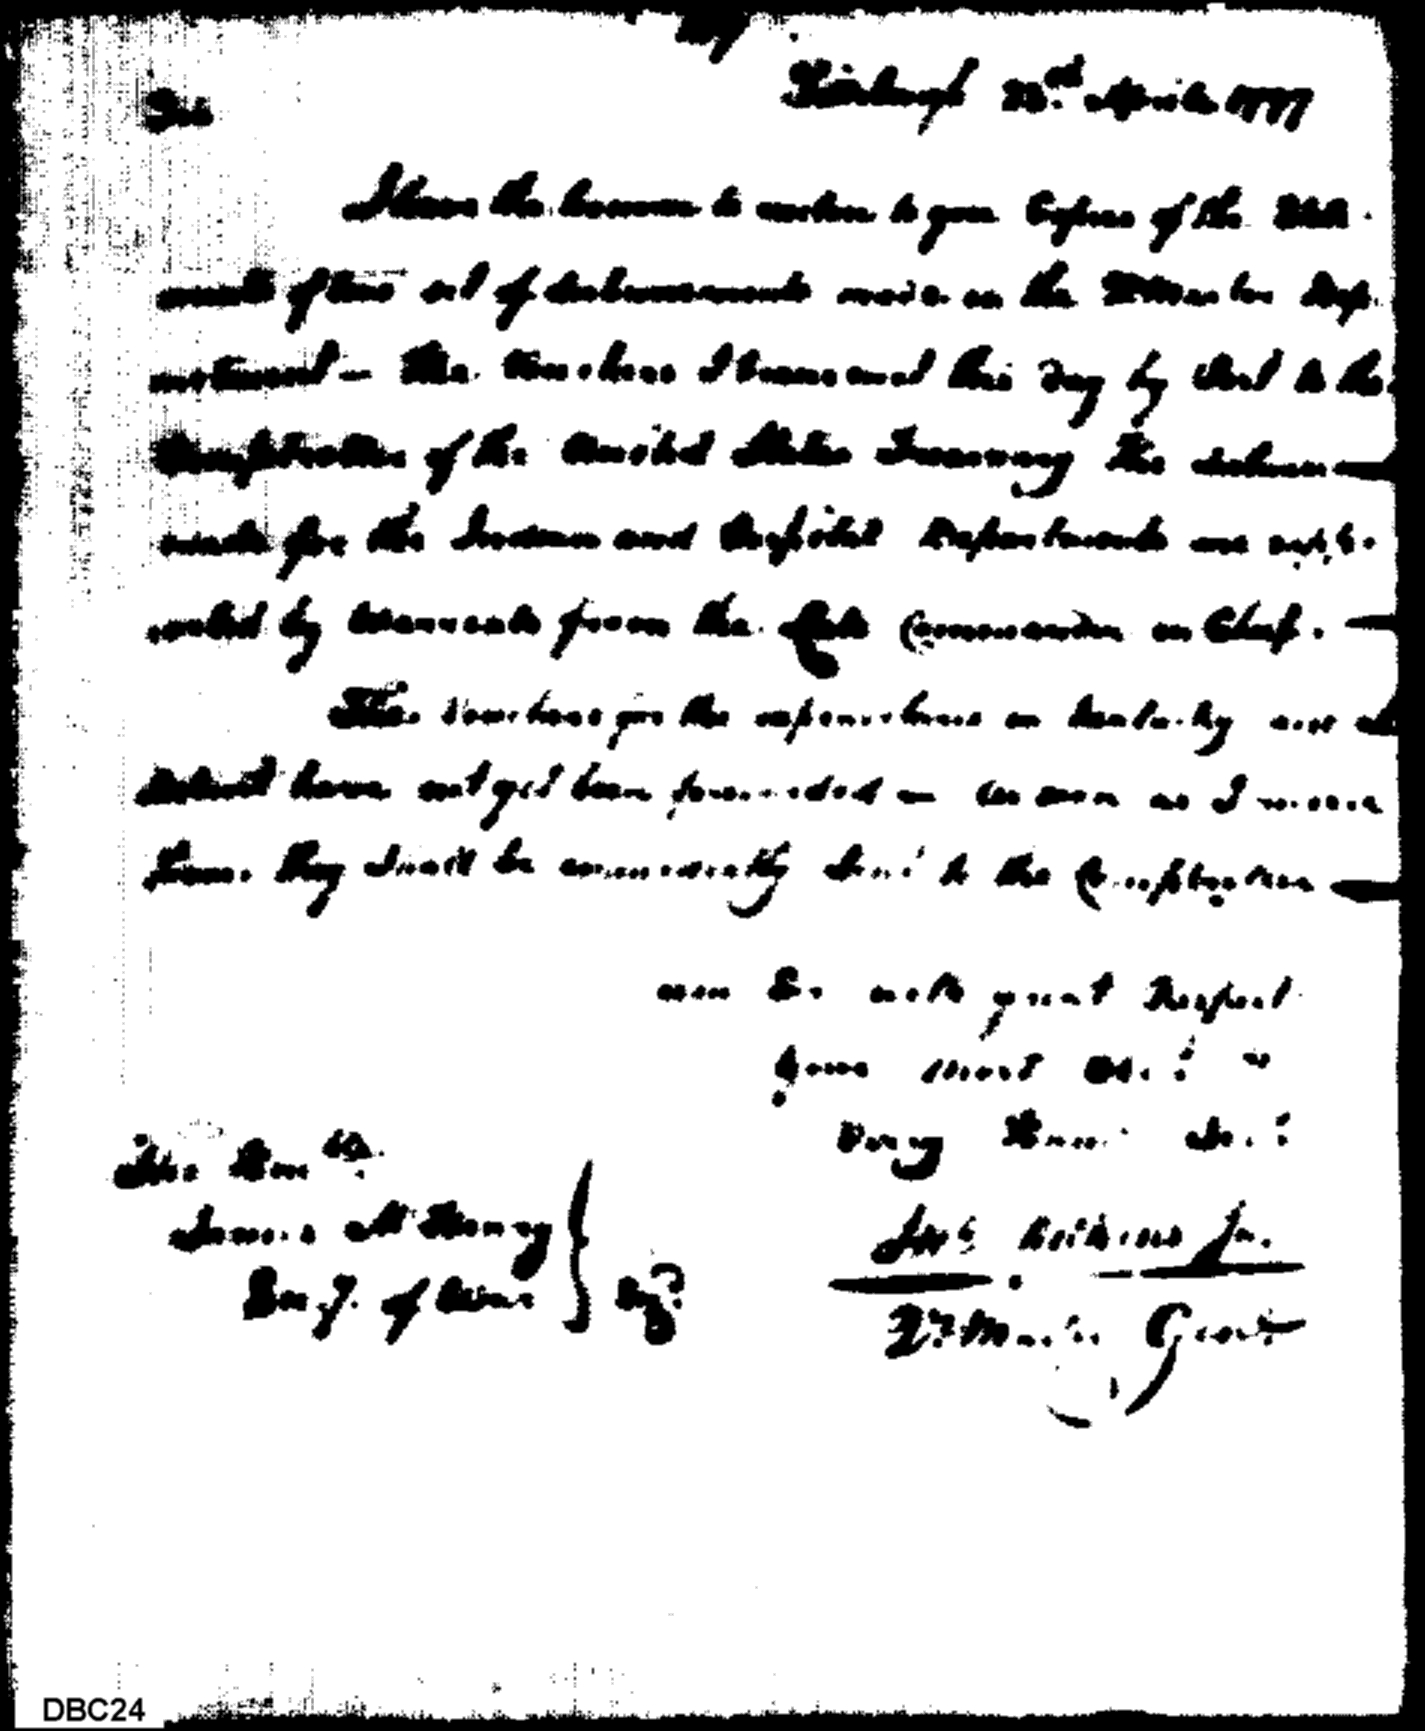 Sir
Pittsburgh 22.nd April 1797
I have the honour to enclose to you Copies of the State
ments of the of disbursements made in the Qr Master Dep
artment — The Vouchers I transmit this day by Post to the
Comptroller of the United States Treasury The disburse
ments for the Indian and Hospital Departments are supp
orted by Warrants from the late Commander in Chief.
The Vouchers for the expenditures in Kentucky and at
Detroit have not yet been forwarded as soon as I receive
them they shall be immediately sent to the Comptroller
Sir with great Respect
Your most Ob.t
Very Hum. Se.t
The Hon.ble
James McHenry
Secy. of War } Esq.r
Jno Wilkins Jr.
Qr. Mastr. Genl.
DBC24